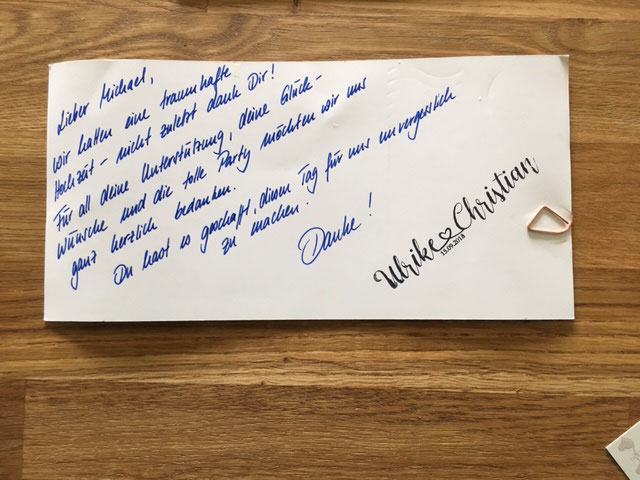 Lieber Michael,
wir hatten eine traumhafte
Hochzeit - nicht zuletzt dank Dir!
Für all deine Unterstützung, deine Glück-
wünsche und die tolle Party möchten wir uns
ganz herzlich bedanken.
Du hast es geschafft, diesen Tag für uns unvergesslich
zu machen.
Danke!
Ulrike Christian
15.09.2018